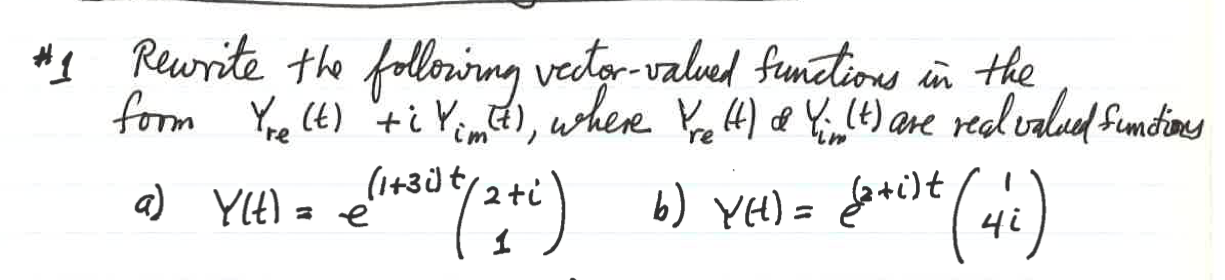 #1 Rewrite the following vector-valued functions in the
form Y_re (t) + i Y_im (t), where Y_re (t) & Y_im (t) are real valued functions
a) Y(t) = e^{(1+3i)t} \begin{pmatrix} 2+i \\ 1 \end{pmatrix} b) Y(t) = e^{(2+i)t} \begin{pmatrix} 1 \\ 4i \end{pmatrix}